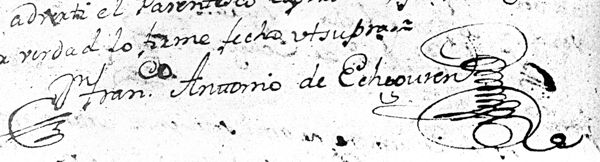 adverti el Parentesco
a verdad lo firme fecho ut supra
Fran.co Antonio de Echeouren